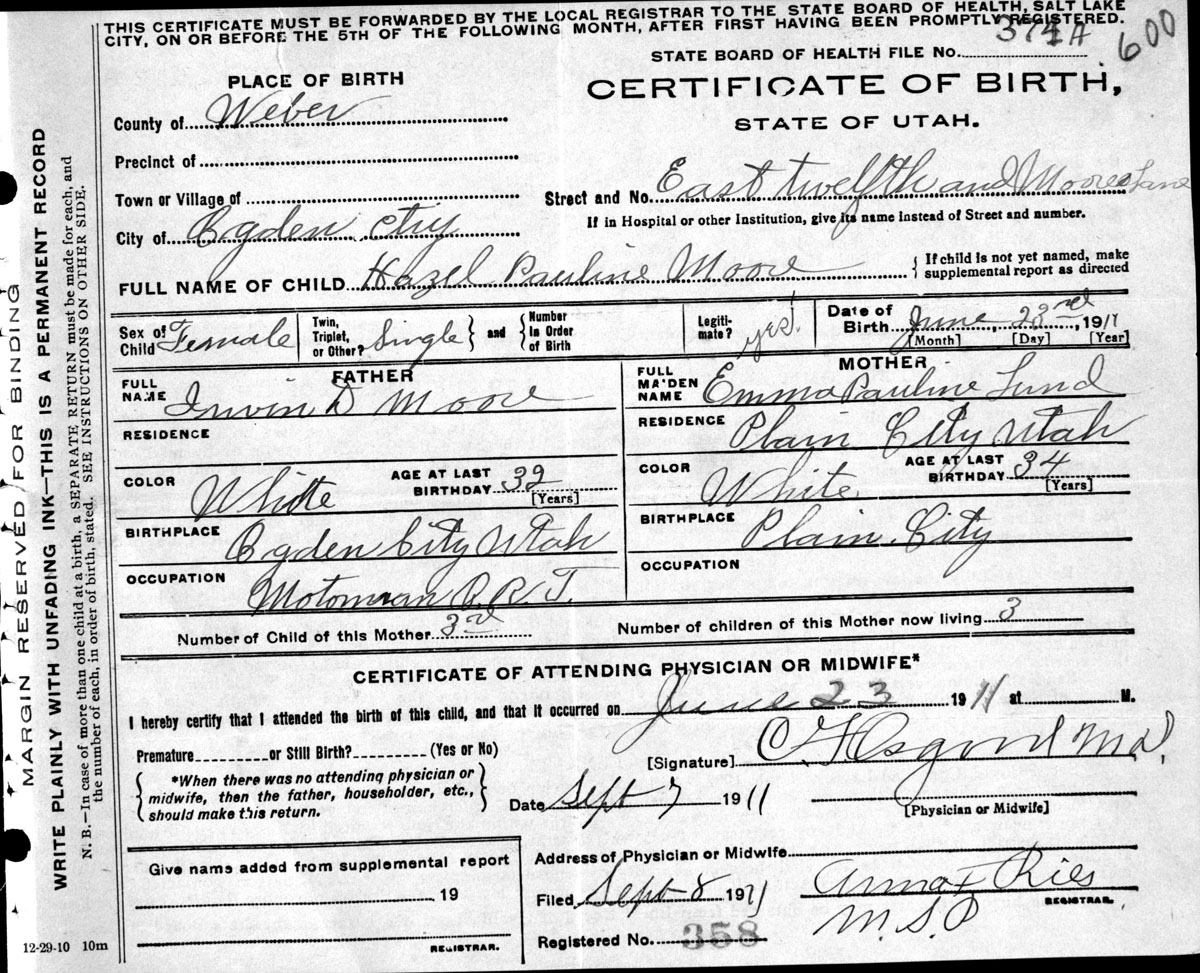 THIS CERTIFICATE MUST BE FORWARDED BY THE LOCAL REGISTRAR TO THE STATE BOARD OF HEALTH, SALT LAKE
CITY, ON OR BEFORE THE 5TH OF THE FOLLOWING MONTH, AFTER FIRST HAVING BEEN PROMPTLY REGISTERED.
600
STATE BOARD OF HEALTH FILE NO. 371A
PLACE OF BIRTH
CERTIFICATE OF BIRTH,
STATE OF UTAH.
County of Weber
Precinct of
Town or Village of
Street and No. East twelfth and Moores Lane
If in Hospital or other Institution, give its name instead of Street and number.
City of Ogden
FULL NAME OF CHILD Hazel Pauline Moore
If child is not yet named, make
supplemental report as directed
Sex of
Child Female
Twin,
Triplet,
or Other? Single
and
Number
in Order
of Birth
Legiti-
mate? yes!
Date of
Birth June 23rd, 1911
[Month] [Day] [Year]
FATHER
FULL
NAME Irvin D Moore
RESIDENCE
COLOR White
AGE AT LAST
BIRTHDAY 32
[Years]
BIRTHPLACE Ogden City Utah
OCCUPATION Motorman O.R.T.
MOTHER
FULL
MAIDEN
NAME Emma Pauline Lund
RESIDENCE Plain City Utah
COLOR White.
AGE AT LAST
BIRTHDAY 34
[Years]
BIRTHPLACE Plain City
OCCUPATION
Number of Child of this Mother 3rd
Number of children of this Mother now living 3
CERTIFICATE OF ATTENDING PHYSICIAN OR MIDWIFE*
I hereby certify that I attended the birth of this child, and that it occurred on June 23 1911 at M.
Premature or Still Birth? (Yes or No)
[Signature] Osgood M.D.
*When there was no attending physician or
midwife, then the father, householder, etc.,
should make this return.
Date Sept 7 1911
[Physician or Midwife]
Give name added from supplemental report
19
REGISTRAR.
Address of Physician or Midwife
Filed Sept 8 1911
Anna F Ries
REGISTRAR.
Registered No. 358
12-29-10 10m
MARGIN RESERVED FOR BINDING
WRITE PLAINLY WITH UNFADING INK—THIS IS A PERMANENT RECORD
N. B.—In case of more than one child at a birth, a SEPARATE RETURN must be made for each, and
the number of each, in order of birth, stated. SEE INSTRUCTIONS ON OTHER SIDE.